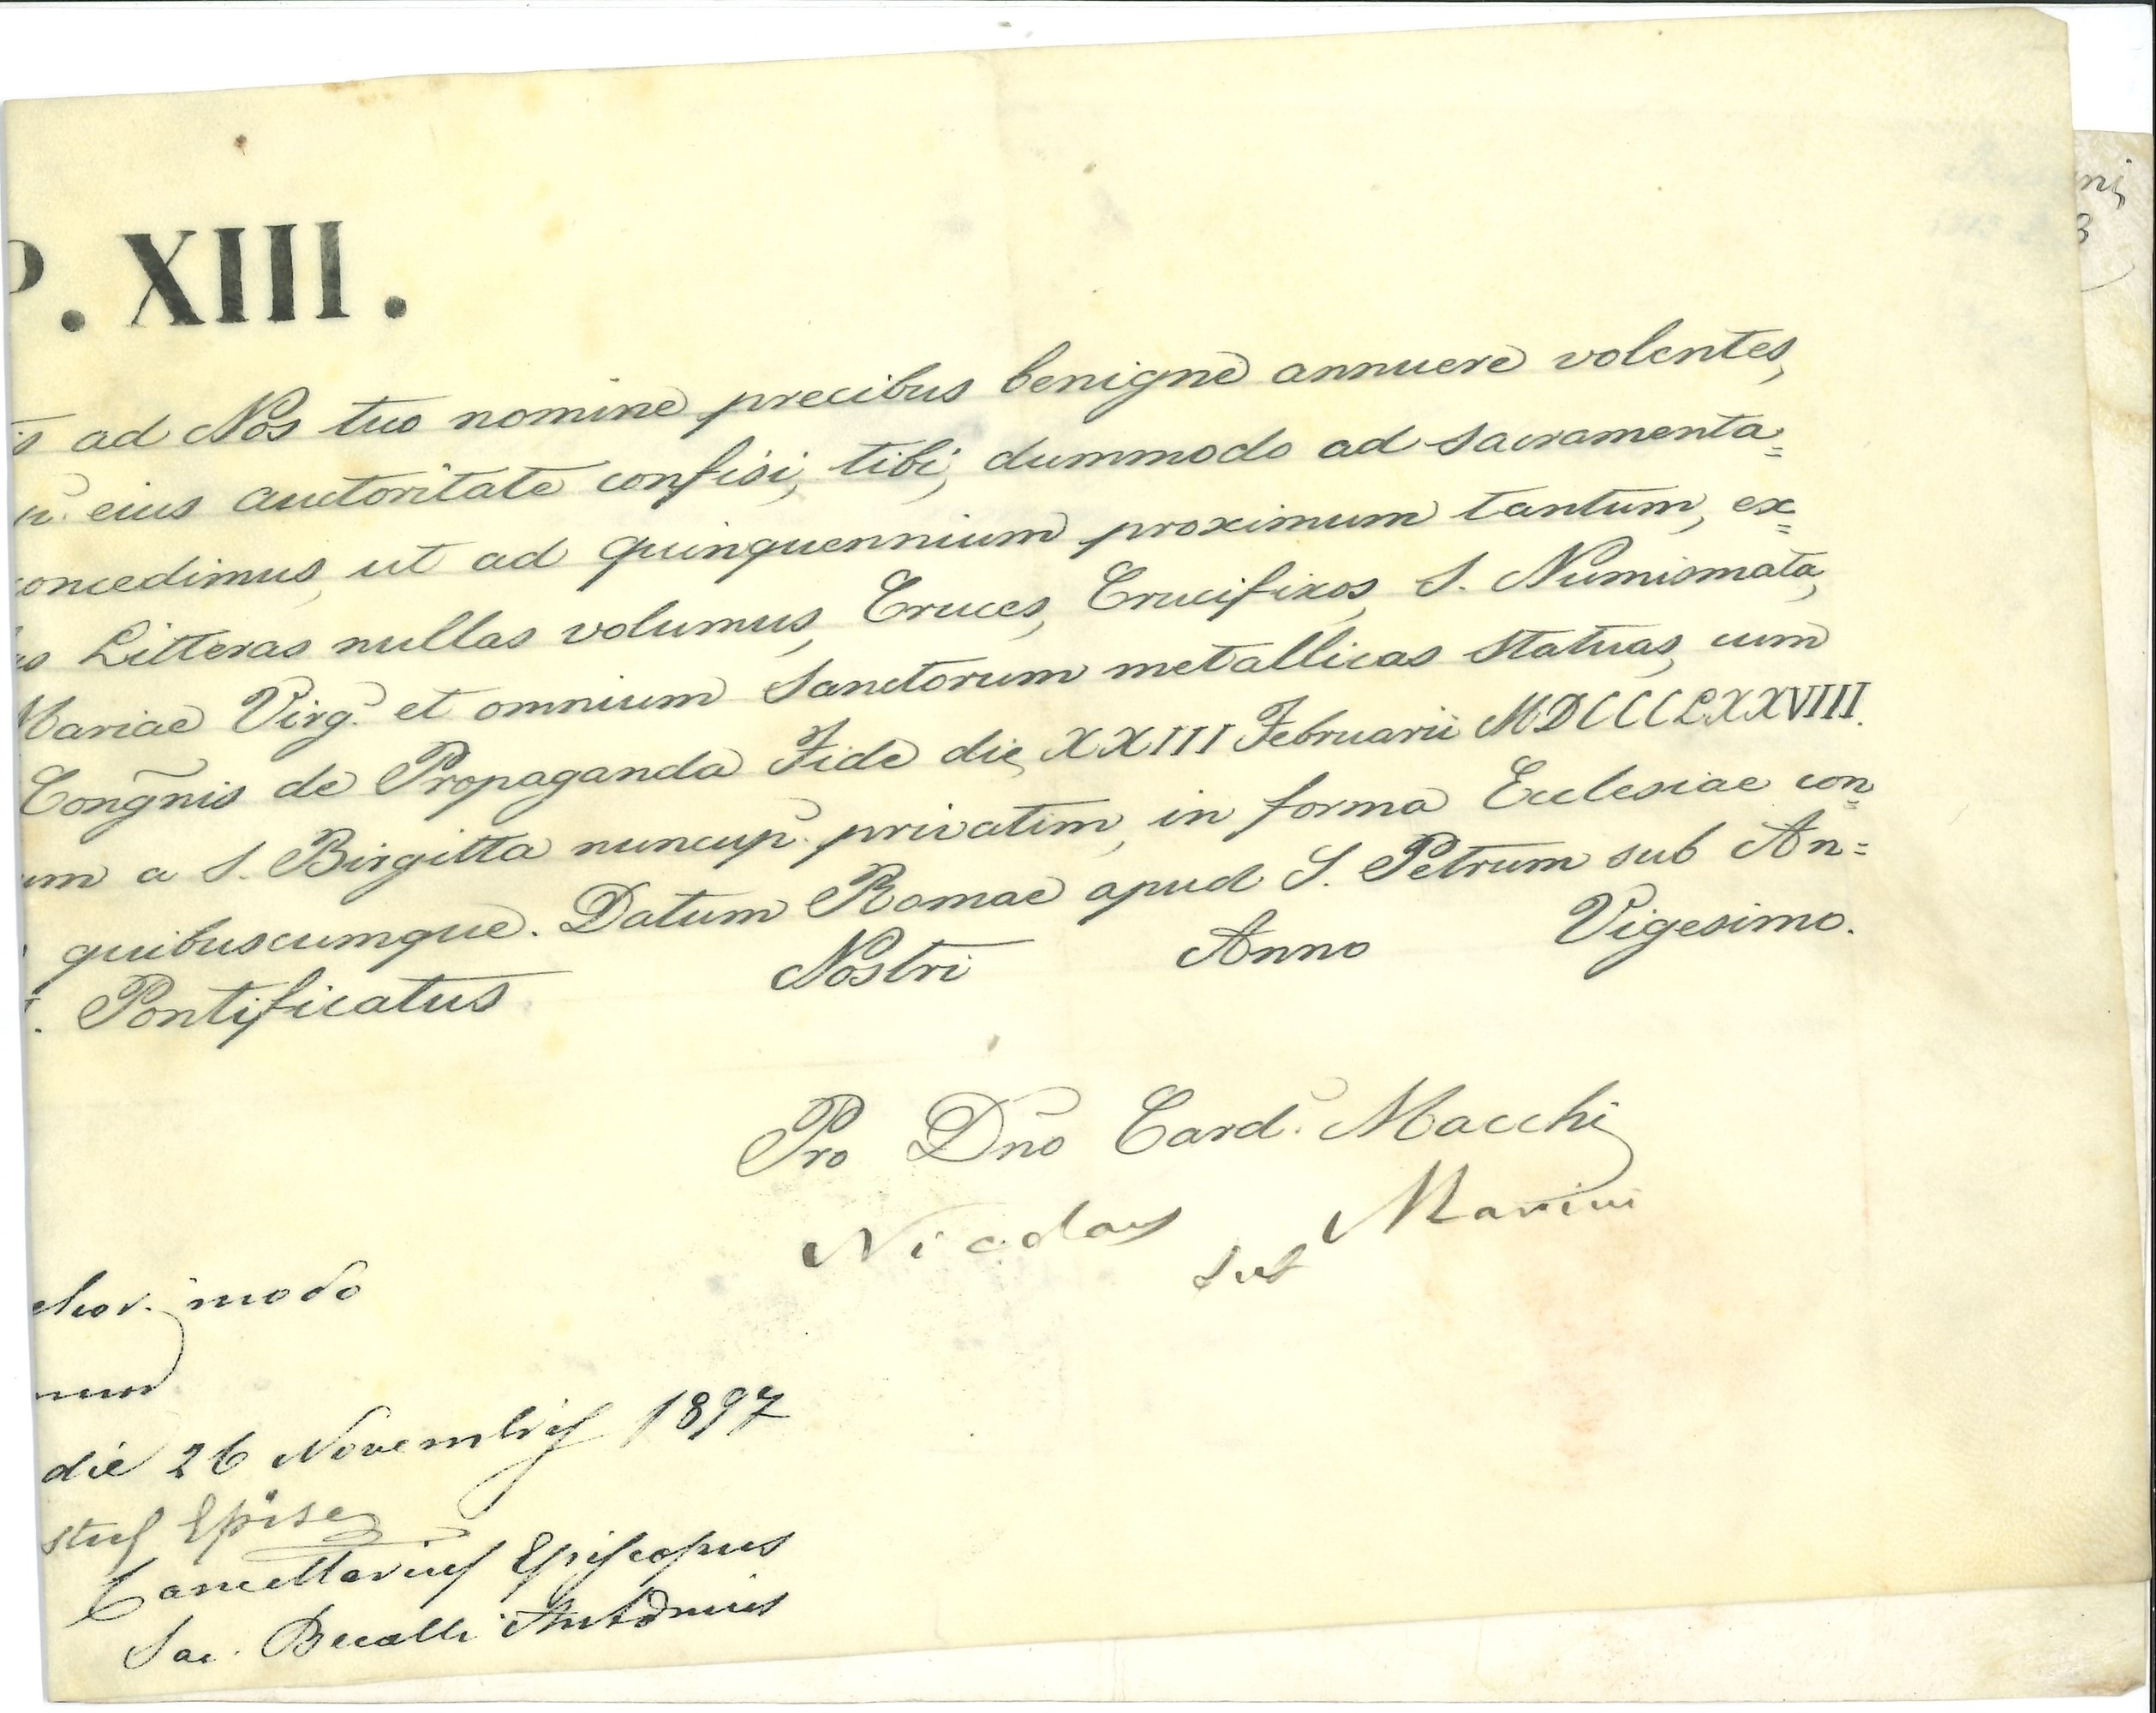 P. XIII.
s ad Nos tuo nomine precibus benigne annuere volentes,
eius auctoritate confisi, tibi, dummodo ad sacramenta=
concedimus, ut ad quinquennium proximum tantum, ex=
Litteras nullas volumus, Cruces, Crucifixos, S. Numismata,
Mariae Virg. et omnium Sanctorum metallicas statuas, cum
Congnis de Propaganda Fide die XXIII Februarii MDCCCLXXVIII.
um a S. Birgitta nuncup. privatim, in forma Ecclesiae con=
quibuscumque. Datum Romae apud S. Petrum sub An=
Pontificatus Nostri Anno Vigesimo.
Pro Dno Card. Macchi
Nicolaus Marini
Sub
modo
die 26 Novembris 1897
Cancellarius Episcopus
Sac. Becalli Antonius